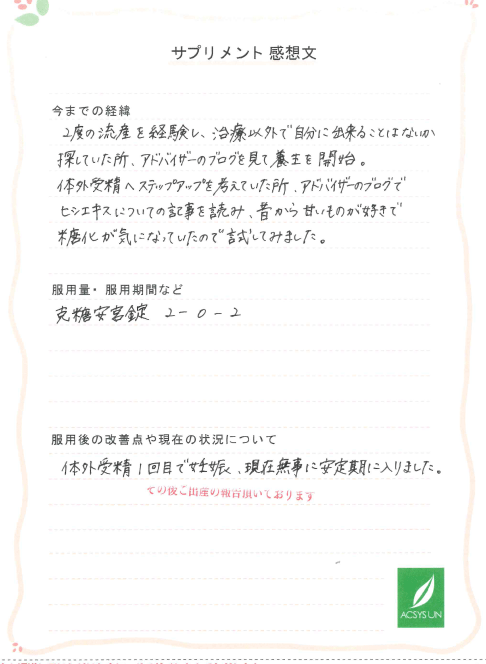 サプリメント 感想文
今までの経緯
2度の流産を経験し、治療以外で自分に出来ることはないか
探していた所、アドバイザーのブログを見て養生を開始。
体外受精へステップアップを考えていた所、アドバイザーのブログで
ヒシエキスについての記事を読み、昔から甘いものが好きで
糖化が気になっていたので試してみました。
服用量・服用期間など
克糖安宮錠 2-0-2
服用後の改善点や現在の状況について
体外受精1回目で妊娠、現在無事に安定期に入りました。
その後ご出産の報告頂いております
ACSYSUN